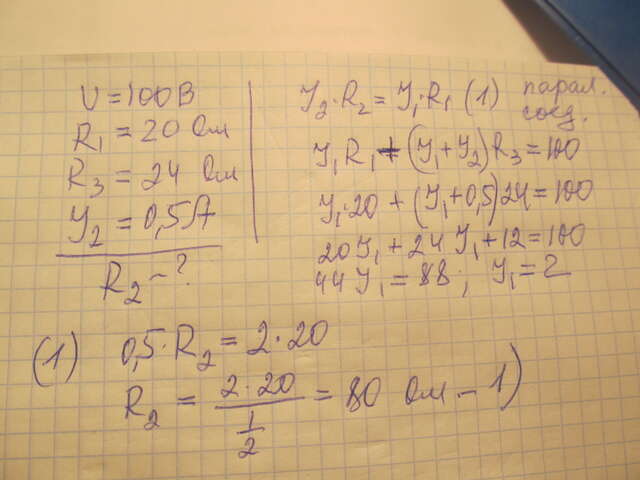 U = 100 В
R₁ = 20 Ом
R₃ = 24 Ом
Y₂ = 0,5 А
R₂ - ?
Y₂·R₂ = Y₁·R₁ (1) парал. соед.
Y₁R₁ + (Y₁+Y₂)R₃ = 100
Y₁·20 + (Y₁+0,5)24 = 100
20Y₁ + 24Y₁ + 12 = 100
44Y₁ = 88; Y₁ = 2
(1) 0,5·R₂ = 2·20
R₂ = (2·20)/(1/2) = 80 Ом - 1)